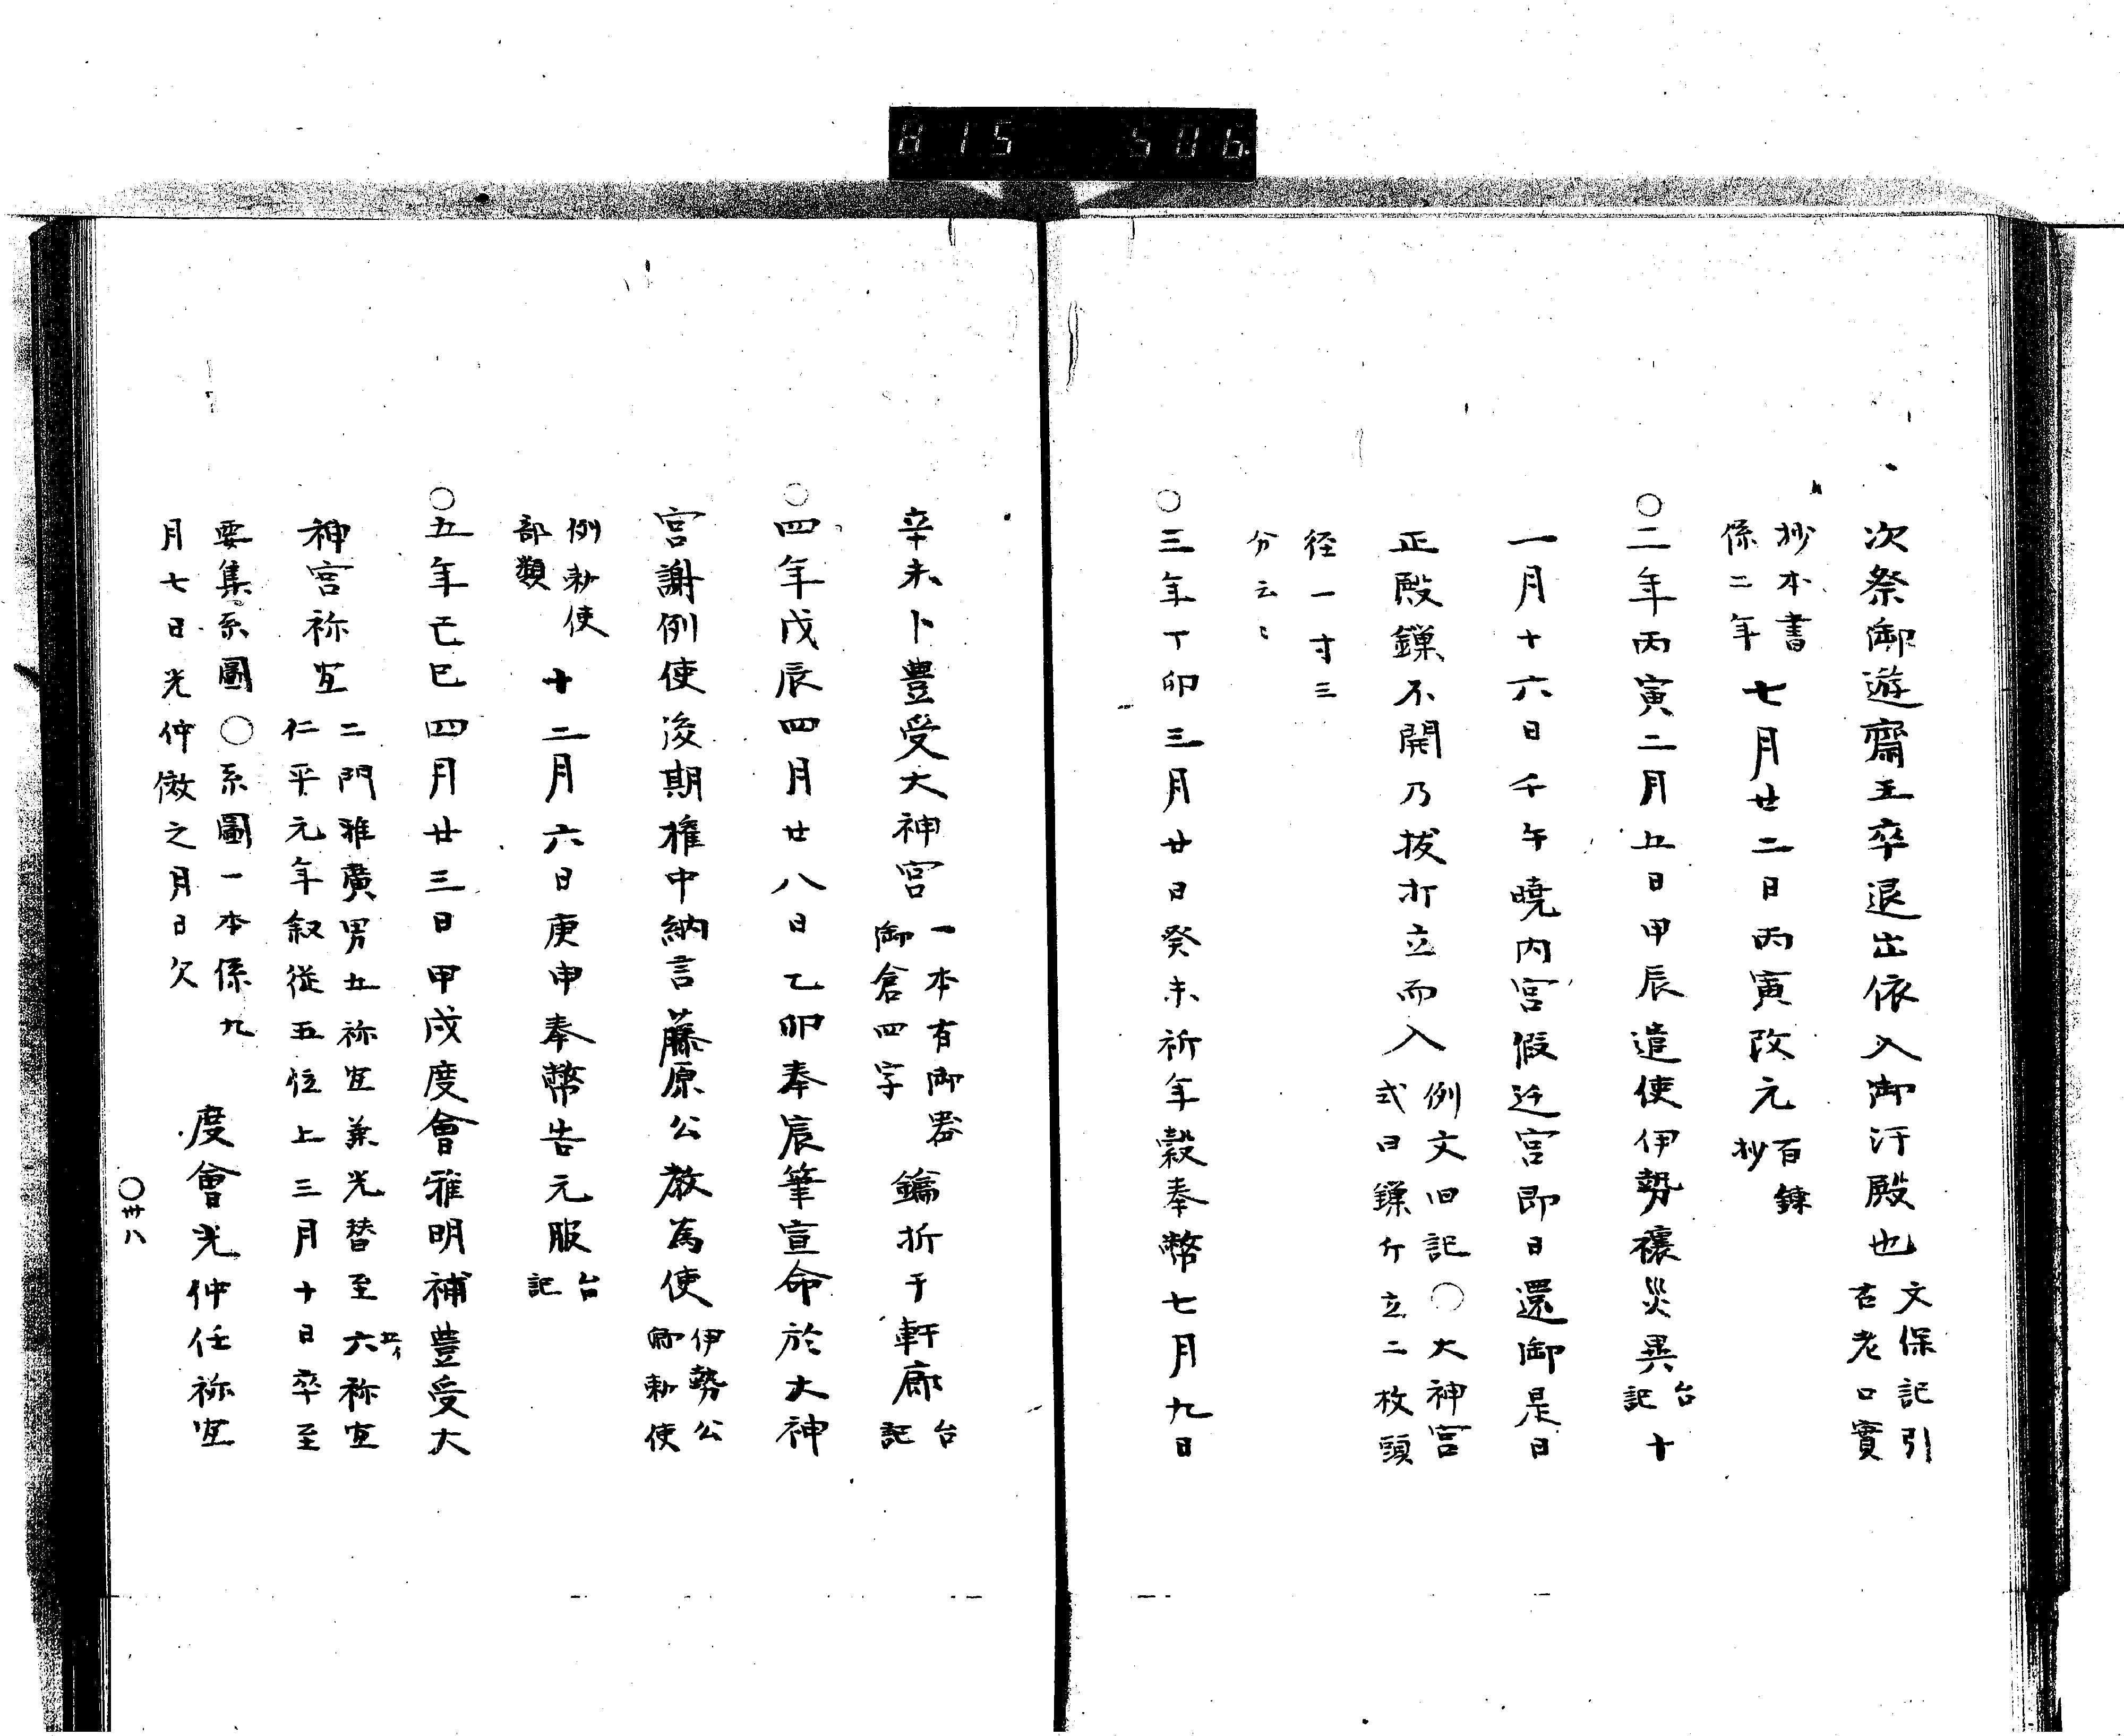 815 506.
次祭御遊齋王卒退出依入御汗殿也文保記引
古老口實
抄本書
係二年七月廿二日丙寅改元百錬
抄
○二年丙寅二月五日甲辰遣使伊勢禳災異台
記十
一月十六日壬午曉内宮假迁宮即日還御是日
正殿鏁不開乃拔釿立而入例文旧記○大神宮
式曰鏁釿立二枚頭
径一寸三
分云〻
○三年丁卯三月廿日癸未祈年穀奉幣七月九日
辛未卜豊受大神宮一本有御器
御倉四字鑰折于軒廊台
記
○四年戊辰四月廿八日乙卯奉宸筆宣命於大神
宮謝例使後期権中納言藤原公教為使伊勢公
卿勅使
例勅使
部類十二月六日庚申奉幣告元服台
記
○五年己巳四月廿三日甲戌度會雅明補豊受大
神宮祢宜二門雅廣男五祢宜兼光替至六五イ祢宜
仁平元年叙従五位上三月十日卒至
要集系圖○系圖一本係九
月七日光仲傚之月日欠度會光仲任祢宜
○卅八